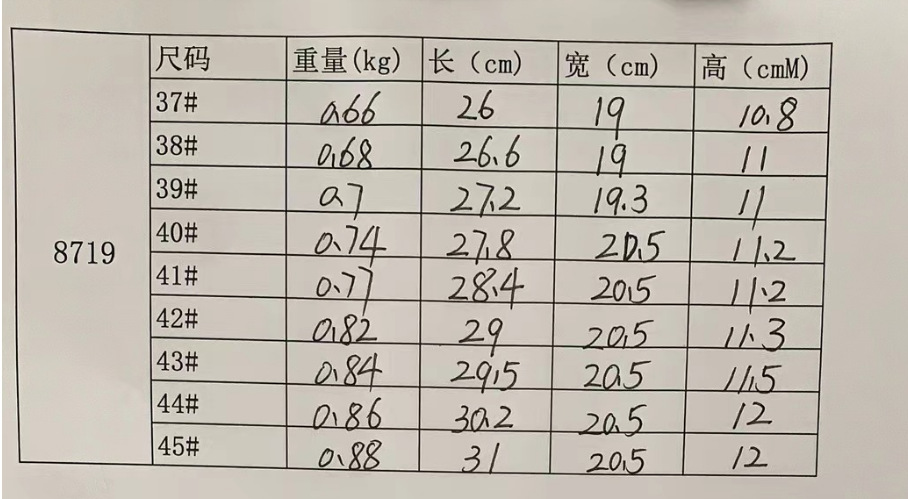 尺码 重量(kg) 长（cm） 宽（cm） 高（cmM)
37# 0.66 26 19 10.8
38# 0.68 26.6 19 11
39# 0.7 27.2 19.3 11
8719 40# 0.74 27.8 20.5 11.2
41# 0.77 28.4 20.5 11.2
42# 0.82 29 20.5 11.3
43# 0.84 29.5 20.5 11.5
44# 0.86 30.2 20.5 12
45# 0.88 31 20.5 12